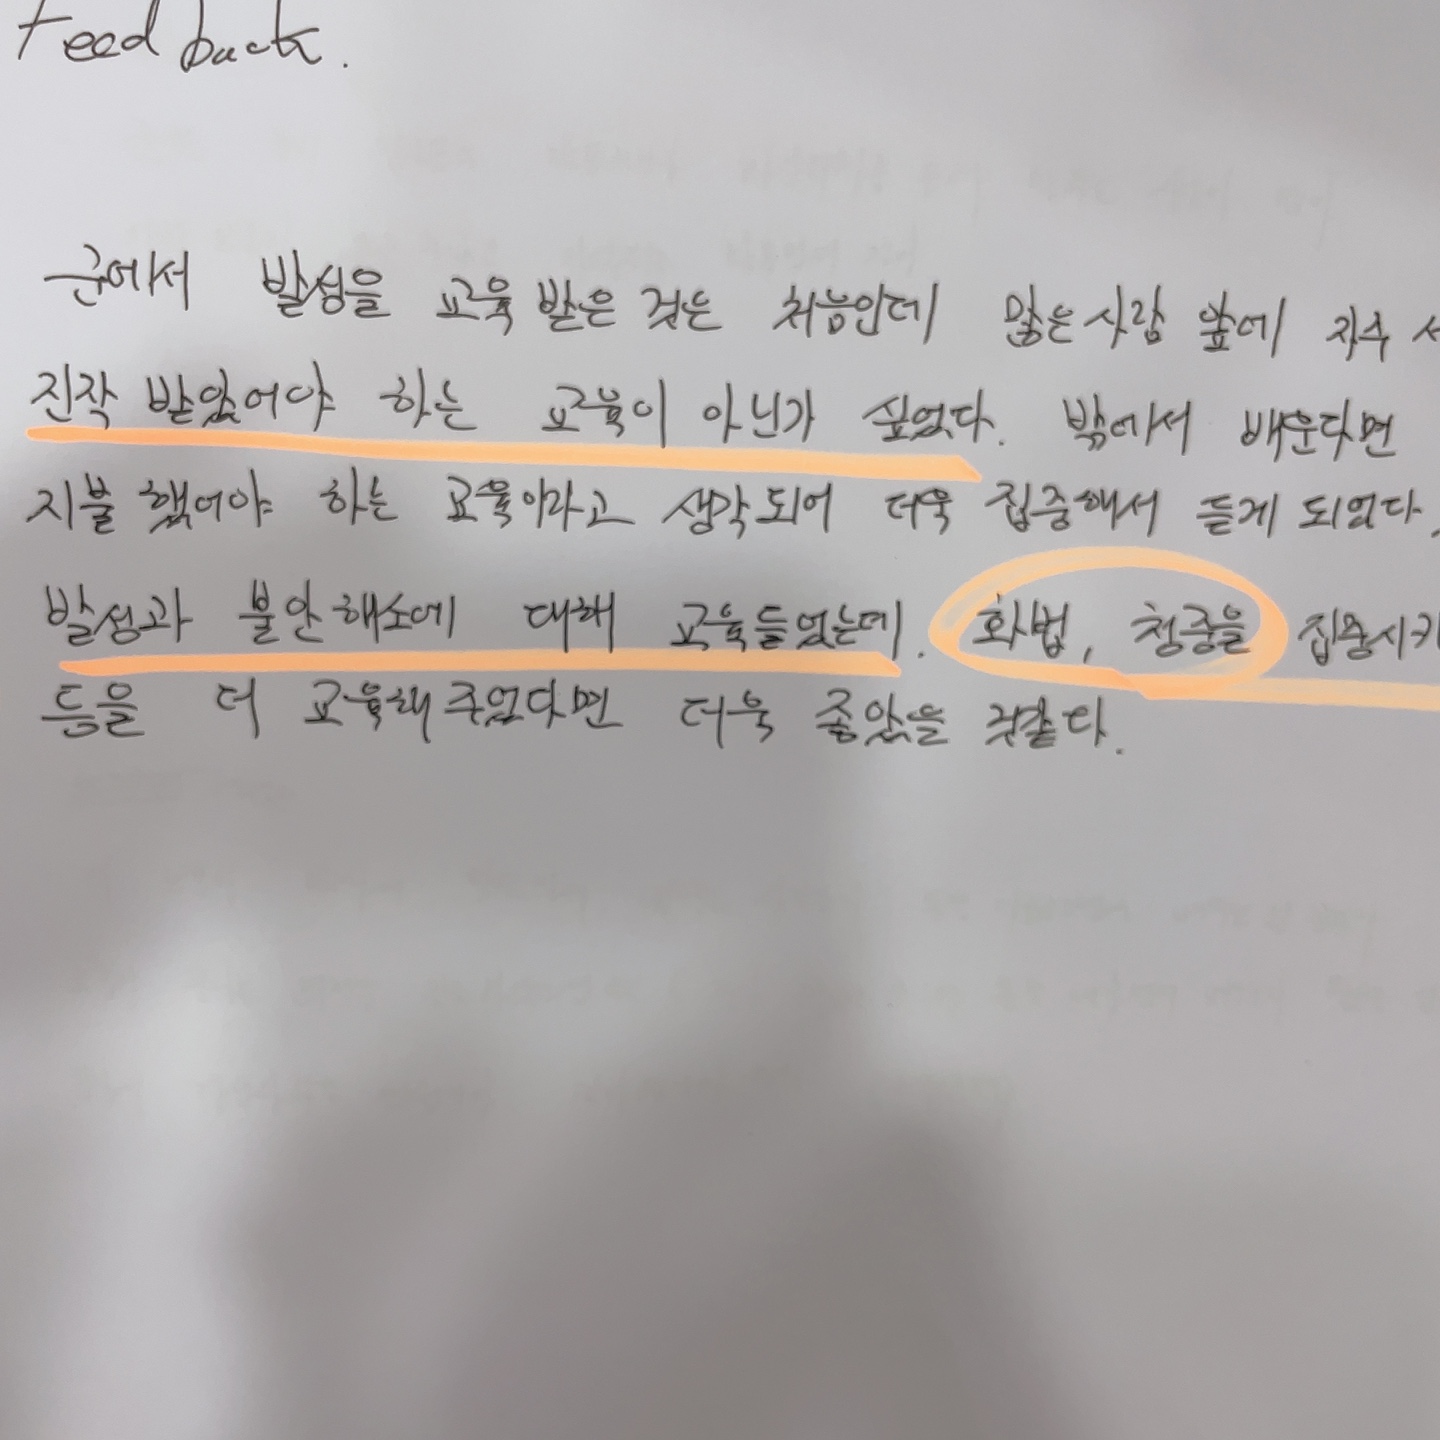 Feedback.
군에서 발성을 교육 받은 것은 처음인데 많은 사람 앞에 자주
진작 받았어야 하는 교육이 아닌가 싶었다. 밖에서 배운다면
지불했어야 하는 교육이라고 생각되어 더욱 집중해서 듣게 되었다.
발성과 불안해소에 대해 교육들었는데. 화법, 청중을 집중시키
등을 더 교육해 주었다면 더욱 좋았을 것같다.